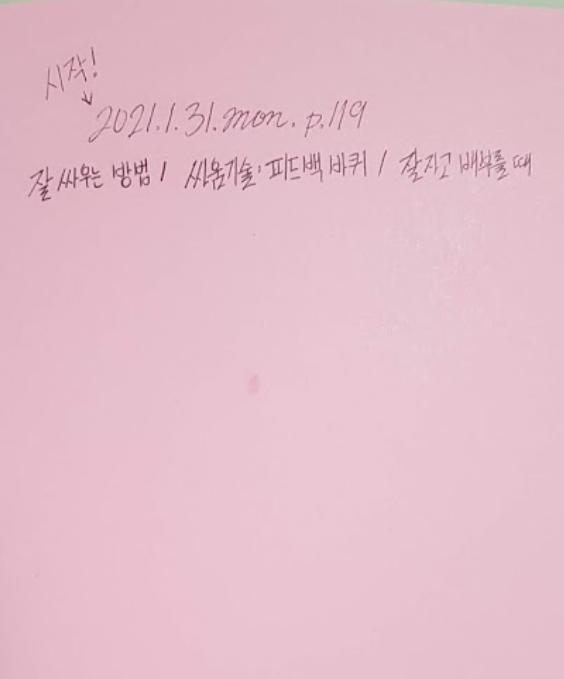 시작!
2021.1.31.mon. p.119
잘 싸우는 방법 / 싸움기술: 피드백 바퀴 / 잘 자고 배부를 때